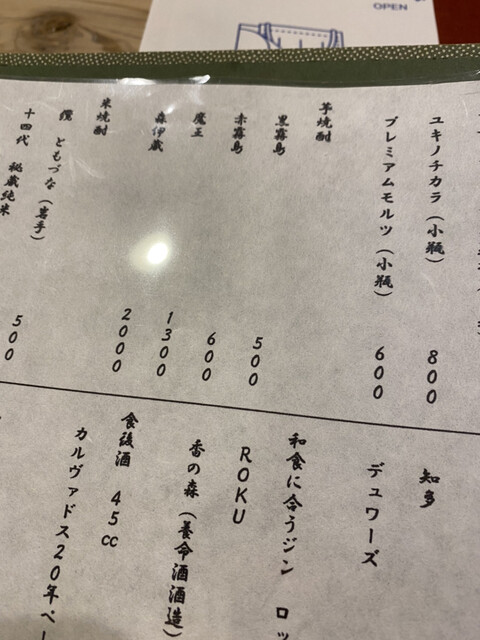 OPEN
ユキノチカラ（小瓶） 800
プレミアムモルツ（小瓶） 600
芋焼酎
黒霧島 500
赤霧島 600
魔王 1300
森伊蔵 2000
米焼酎
纜 ともづな（岩手） 500
十四代 秘蔵純米
知多
デュワーズ
和食に合うジン ロッ
ROKU
香の森（養命酒酒造）
食後酒 45cc
カルヴァドス20年ペー